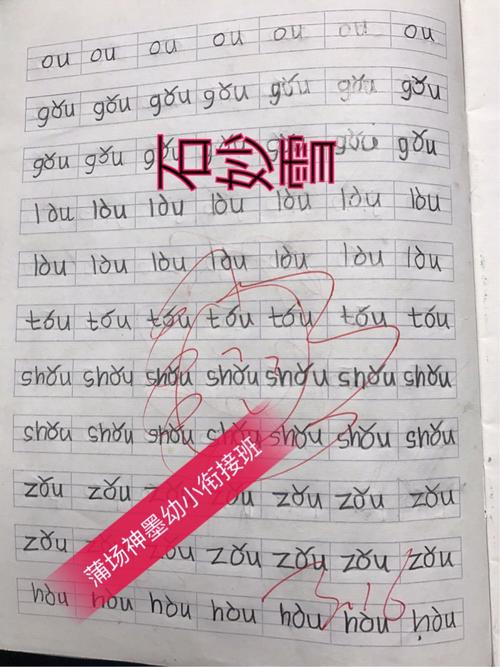 ou ou ou ou ou ou ou
gǒu gǒu gǒu gǒu gǒu gǒu gǒu
gǒu gǒu gǒu gǒu gǒu gǒu
石妙雪
lòu lòu lòu lòu lòu lòu lòu
lòu lòu lòu lòu lòu lòu lòu
tóu tóu tóu tóu tóu tóu tóu
shǒu shǒu shǒu shǒu shǒu shǒu shǒu
shǒu shǒu shǒu shǒu shǒu shǒu shǒu
zǒu zǒu zǒu zǒu zǒu zǒu
蒲场神墨幼小衔接班
zǒu zǒu zǒu zǒu zǒu zǒu
hòu hòu hòu hòu hòu hòu hòu
3.16